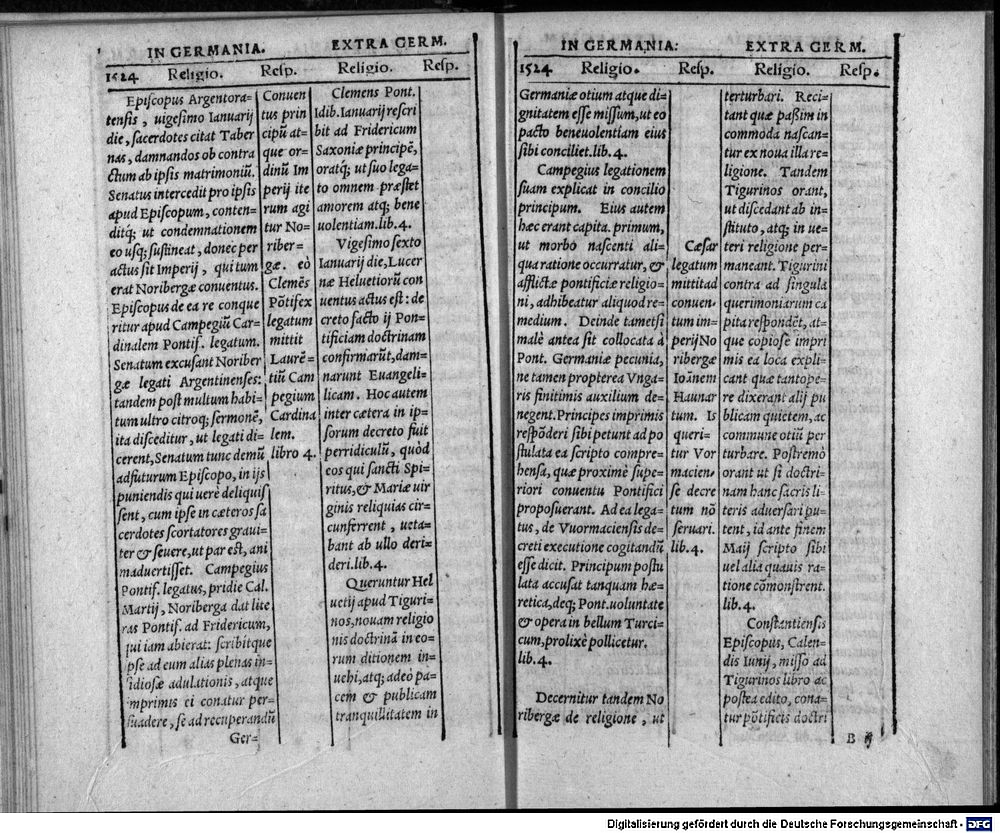 IN GERMANIA.
EXTRA GERM.
1524
Religio.
Resp.
Religio.
Resp.
Episcopus Argentora-
tensis, uigesimo Ianuarij
die, sacerdotes citat Taber
nas, damnandos ob contra
ctum ab ipsis matrimoniū.
Senatus intercedit pro ipsis
apud Episcopum, conten-
ditq́; ut condemnationem
eo usq; sustineat, donec per
actus sit Imperij, qui tum
erat Noribergæ conuentus.
Episcopus de ea re conque
ritur apud Campegiū Car-
dinalem Pontif. legatum.
Senatum excusant Noriber
gæ legati Argentinenses:
tandem post multum habi-
tum ultro citroq; sermonē,
ita disceditur, ut legati di-
cerent, Senatum tunc demū
adfuturum Episcopo, in ijs
puniendis qui uerè deliquis
sent, cum ipse in cæteros sa
cerdotes scortatores graui-
ter & seuere, ut par est, ani
maduertisset. Campegius
Pontif. legatus, pridie Cal.
Martij, Noriberga dat lite
ras Pontif. ad Fridericum,
qui iam abierat: scribitque
ipse ad eum alias plenas in-
sidiosæ adulationis, atque
imprimis ei conatur per-
suadere, se ad recuperandū
Ger-
Conuen
tus prin
cipū at-
que or-
dinū Im
perij ite
rum agi
tur No-
riber-
gæ. eò
Clemēs
Pōtifex
legatum
mittit
Laurē-
tiū Cam
pegium
Cardina
lem.
libro 4.
Clemens Pont.
Idib. Ianuarij rescri
bit ad Fridericum
Saxoniæ principē,
oratq́; ut suo lega-
to omnem præstet
amorem atq; bene
uolentiam. lib. 4.
Vigesimo sexto
Ianuarij die, Lucer
næ Heluetiorū con
uentus actus est: de
creto facto ij Pon-
tificiam doctrinam
confirmarūt, dam-
narunt Euangeli-
licam. Hoc autem
inter cætera in ip-
sorum decreto fuit
perridiculū, quòd
eos qui sancti Spi-
ritus, & Mariæ uir
ginis reliquias cir-
cunferrent, ueta-
bant ab ullo deri-
deri. lib. 4.
Queruntur Hel
uetij apud Tiguri-
nos, nouam religio
nis doctrinā in eo-
rum ditionem in-
uehi, atq; adeo pa-
cem & publicam
tranquillitatem in
IN GERMANIA:
EXTRA GERM.
1524
Religio.
Resp.
Religio.
Resp.
Germaniæ otium atque di-
gnitatem esse missum, ut eo
pacto beneuolentiam eius
sibi conciliet. lib. 4.
Campegius legationem
suam explicat in concilio
principum. Eius autem
hæc erant capita. primum,
ut morbo nascenti ali-
qua ratione occurratur, &
afflictæ pontificiæ religio-
ni, adhibeatur aliquod re-
medium. Deinde tametsi
malè antea sit collocata à
Pont. Germaniæ pecunia,
ne tamen propterea Vnga-
ris finitimis auxilium de-
negent. Principes imprimis
respōderi sibi petunt ad po
stulata ea scripto compre-
hensa, quæ proximè supe-
riori conuentu Pontifici
proposuerant. Ad ea lega-
tus, de Vuormaciensis de-
creti executione cogitandū
esse dicit. Principum postu
lata accusat tanquam hæ-
retica, deq; Pont. uoluntate
& opera in bellum Turci-
cum, prolixè pollicetur.
lib. 4.
Decernitur tandem No
ribergæ de religione, ut
Cæsar
legatum
mittit ad
conuen-
tum im-
perij No
ribergæ
Ioānem
Haunar
tum. Is
queri-
tur Vor
maciens
se decre
tum nō
seruari.
lib. 4.
terturbari. Reci-
tant quæ paßim in
commoda nascan-
tur ex noua illa re-
ligione. Tandem
Tigurinos orant,
ut discedant ab in-
stituto, atq; in ue-
teri religione per-
maneant. Tigurini
contra ad singula
querimoniarum ca
pita respondēt, at-
que copiose impri
mis ea loca expli-
cant quæ tantope-
re dixerant alij pu
blicam quietem, ac
commune otiū per
turbare. Postremò
orant ut si doctri-
nam hanc sacris li-
teris aduersari pu-
tent, id ante finem
Maij scripto sibi
uel alia quauis ra-
tione cōmonstrent.
lib. 4.
Constantiensis
Episcopus, Calen-
dis Iunij, misso ad
Tigurinos libro ac
postea edito, cona-
tur pōtificis doctri
B ij
Digitalisierung gefördert durch die Deutsche Forschungsgemeinschaft - DFG